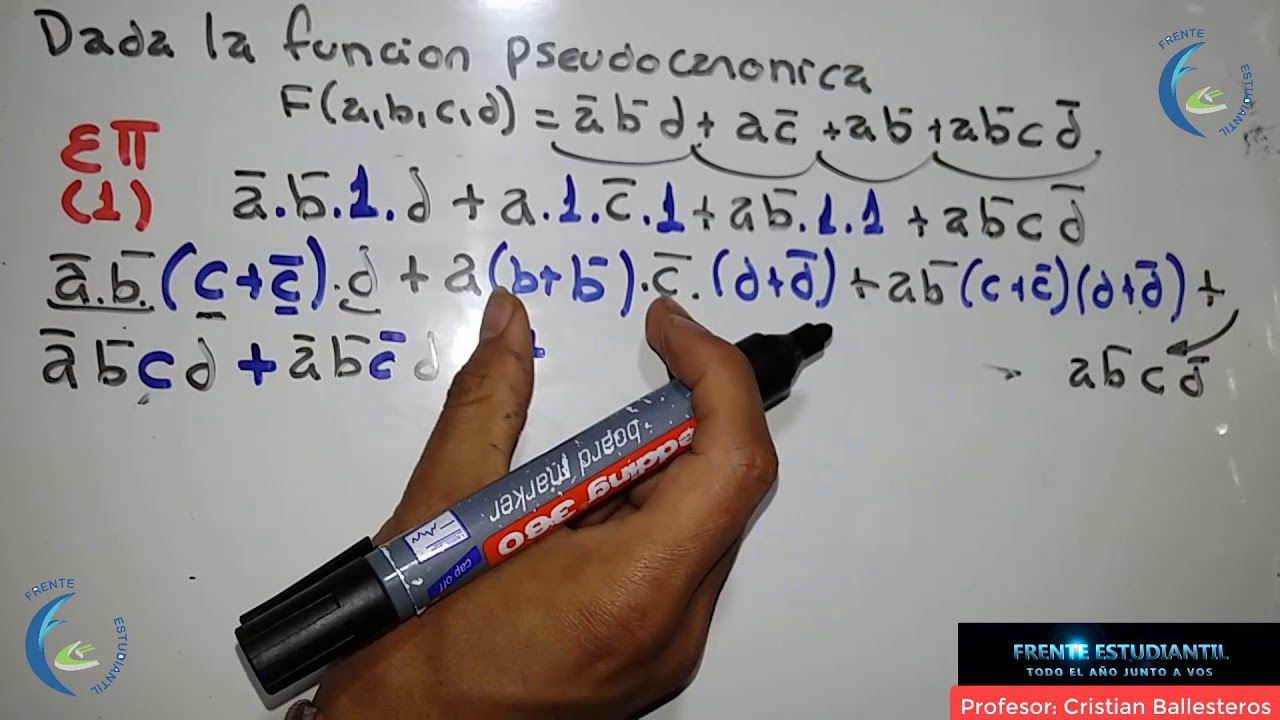 Dada la funcion pseudocanonica
F(a,b,c,d) = a̅ b̅ d + a c̅ + a b̅ + a b̅ c d̅
Σπ
(1)
a̅.b̅.1.d + a.1.c̅.1 + a b̅.1.1 + a b̅ c d̅
a̅.b̅.(c+c̅).d + a(b+b̅).c̅.(d+d̅) + a b̅ (c+c̅)(d+d̅) +
a̅ b̅ c d + a̅ b̅ c̅ d +
a b̅ c d̅
board marker
edding 360
cap off
FRENTE ESTUDIANTIL
FRENTE ESTUDIANTIL
FRENTE ESTUDIANTIL
TODO EL AÑO JUNTO A VOS
Profesor: Cristian Ballesteros